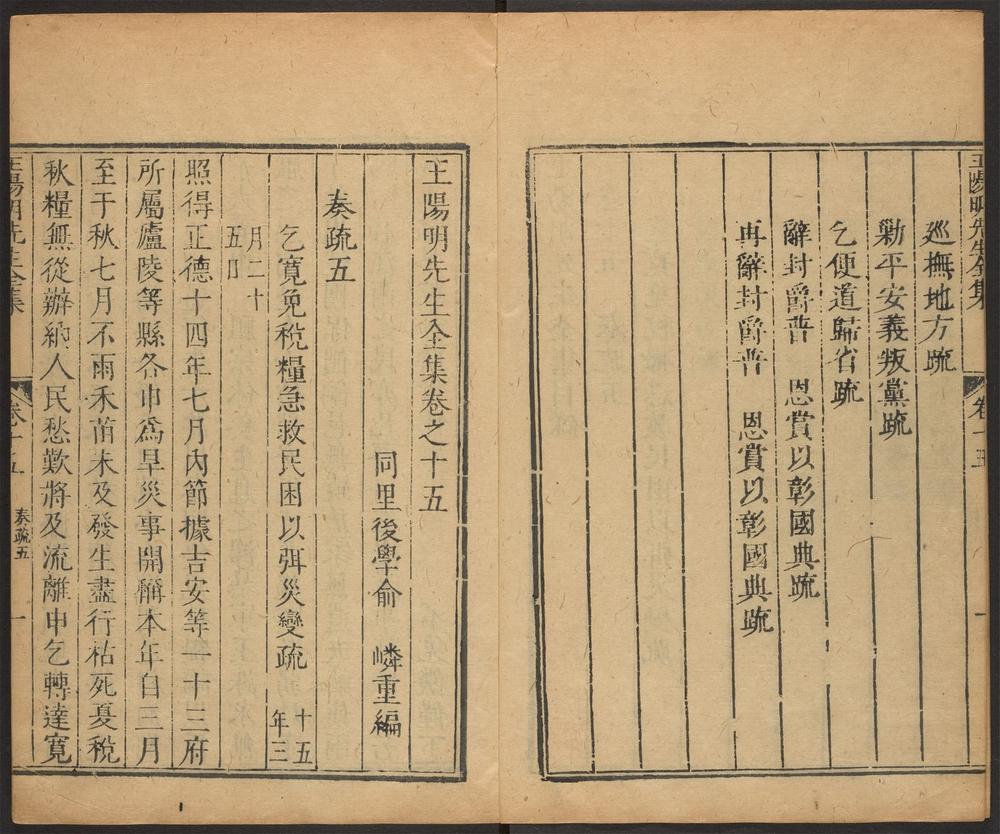 王陽明先生全集 卷十五 一
巡撫地方疏
勦平安義叛黨疏
乞便道歸省疏
辭封爵普 恩賞以彰國典疏
再辭封爵普 恩賞以彰國典疏
王陽明先生全集卷之十五
同里後學俞 嶙重編
奏疏五
乞寬免稅糧急救民困以弭災變疏 十五年三
月二十五日
照得正德十四年七月內節據吉安等一十三府
所屬廬陵等縣各申爲旱災事開稱本年自三月
至于秋七月不雨禾苗未及發生盡行枯死夏稅
秋糧無從辦納人民愁歎將及流離申乞轉達寬
王陽明先生全集 卷十五 奏疏五 一